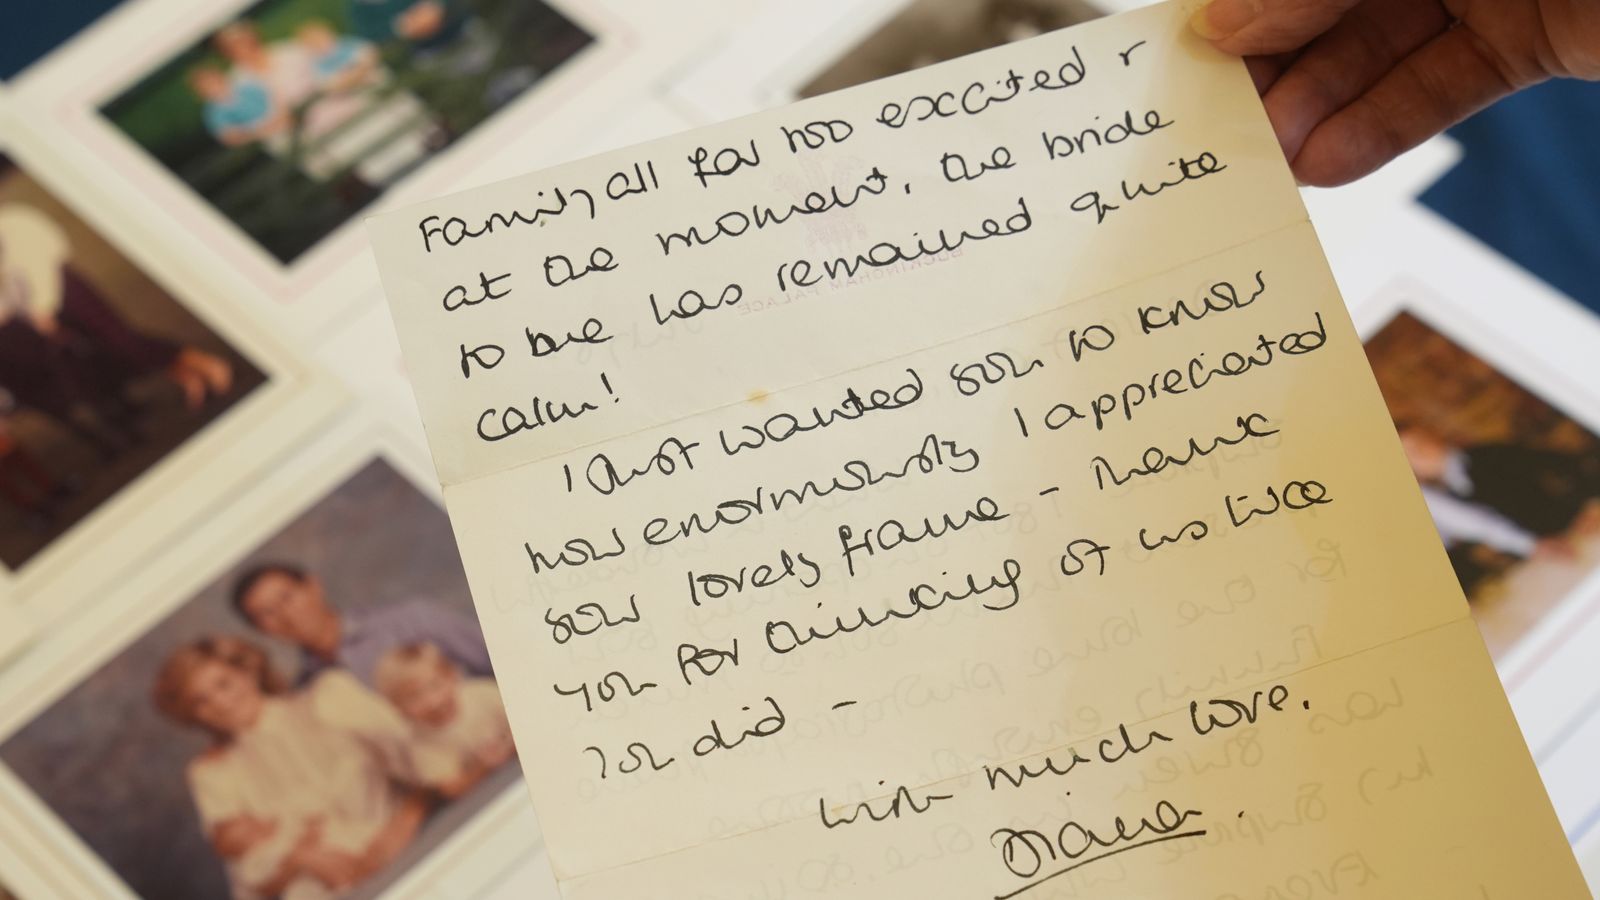 Family all far too excited r
at the moment, the bride
to be has remained quite
calm!
I just wanted you to know
how enormously I appreciated
your lovely frame - thank
you for thinking of us like
you did -
With much love.
Diana.
BUCKINGHAM PALACE